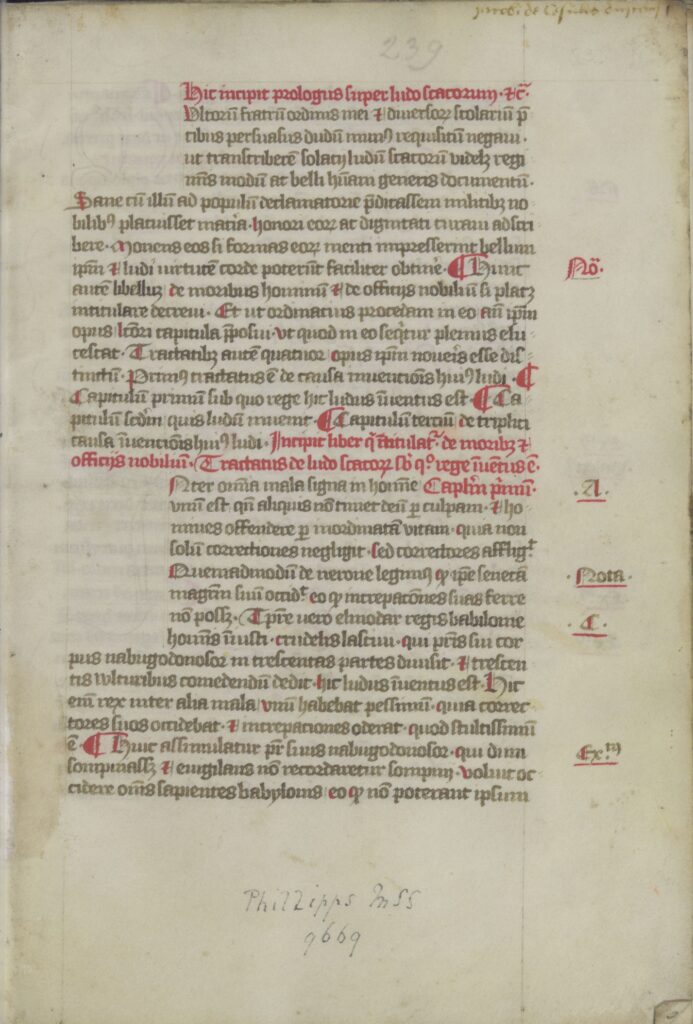 239
Hic incipit prologus super ludo scacorum · ⁊c̄·
Ultorū fratrū ordinis mei ⁊ diversorꝝ scolariū p̄
tibus persuasus dudum minus requisitū negavi ·
ut transcriberē solacij ludū scacorū videlꝫ regi
minis modū at belli hūani generis documentū ·
Sane cū illū ad populū declamatorie p̄dicassem militibꝫ no
bilibꝰ placuisset mat̄ia · honori eorꝝ at dignitati curavi adscri
bere · Monens eos si formas eorꝝ menti impresserint bellum
ip̄m ⁊ ludi virtutem corde poterunt faciliter obtin̄e · ¶ Hunc
autē libellūꝫ de moribus hominū ⁊ de officijs nobiliū si placꝫ
intitulare decrevi · Et ut ordinatius procedam in eo an̄ ip̄m
opus lc̄ori capitula p̄posui · vt quod in eo seqr̄tur plenius elu
cescat · Tractatibꝫ autē quatuor opus ip̄m noveris esse dis
tinctū · Primus tractatus ē de causa invencionis huiꝰ ludi · ¶
Capitulum primum sub quo rege hic ludus īventus est · ¶ Ca
pitulū scd̄m quis ludū invenit · ¶ Capitulū terciū de triplici
causa īvencionis huiꝰ ludi · Incipit liber q̄ ītitulat̄ · de moribꝫ ⁊
officijs nobiliū · Tractatus de ludo scacorꝝ sb̄ qͦ rege īventus ē ·
Nter omnia mala signa in homine Capl̄m p̄mū ·
unum est qn̄ aliquis nō timet deū ꝑ culpam · ⁊ ho
mines offendere ꝑ inordinatā vitam · quia non
solū correctiones negligit · sed correctores affligᵗ
Quemadmodū de nerone legimus qꝫ ip̄e senecā
magr̄m suū occidᵗ eo qꝫ increpac̄ones suas ferre
nō possꝫ · Tp̄re vero elmodar regis babilonie
hoīnis īiusti · crudelis lascivi · qui pr̄is sui cor
pus nabugodonosor in trescentas partes divisit · ⁊ trescen
tis vulturibus comedendū dedit · hic ludus īventus est · Hic
enī rex inter alia mala · unū habebat pessimū · quia correc
tores suos occidebat · ⁊ increpaciones oderat · quod stultissimū
ē · ¶ Huic assimulatur pr̄ suus nabugodonosor · qui dum
sompniassꝫ ⁊ evigilans nō recordaretur sompnij · voluit oc
cidere om̄s sapientes babylonis · eo qꝫ nō poterant ipsum
Nō ·
· A ·
· Nota ·
· C ·
Exᵐ
Phillipps Mss
9669